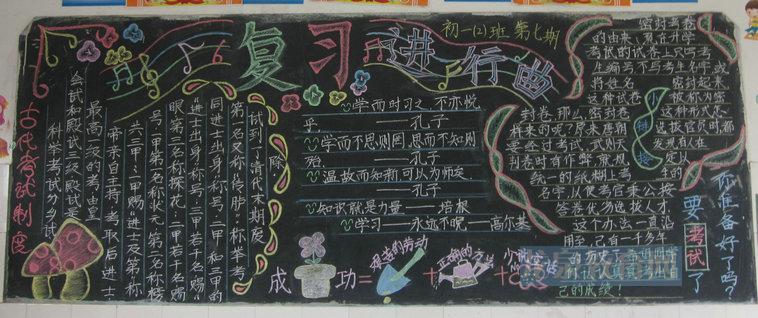 复习进行曲
初一(2)班 第七期
古代考试制度
科举考试分乡试
会试和殿试三级殿试是
最高一级的考由皇
帝亲自主持考取后进士
共三甲:一甲"赐"进士及第称
号一甲第一名称状元第二名称榜
眼第三名称探花;二甲若干名赐
"进士出身"称号;三甲若干名赐"
同进士出身"称号二甲和三甲的
第一名又称"传胪"称举考
试到一清代末期废
除
学而时习之,不亦悦
乎——孔子
学而不思则罔,思而不知则
殆——孔子
温故而知新可以为师矣
——孔子
知识就是力量——培根
学习——永远不晚——高尔基
成功=艰苦的劳动+正确的方法+少说空话
密封考卷
的由来,现在升学
考试的试卷上只写考
生编号,不写考生名字或
将姓名密封起来
这种试卷被称为密
封卷,那么,密封卷这种形式怎
样来的呢?原来唐朝选拔官员时都
要经过考试,武则天发现有在
判卷时有作弊,就规定以
统一的纸糊上考生的
名字以使考官秉公按
答卷优劣选拔人才
这个办法一直沿
用至,已有一千多年
的历史
己的成绩!
小链接
你准备好了吗?
要考试了